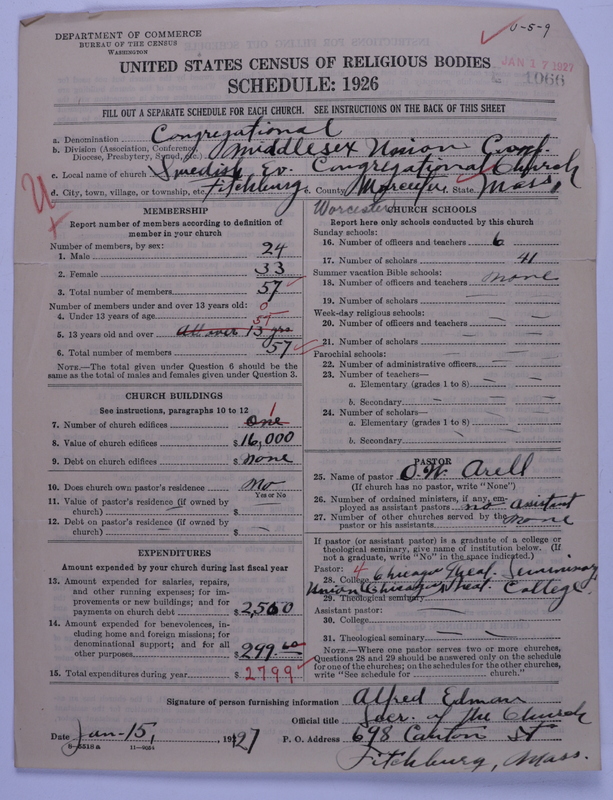 DEPARTMENT OF COMMERCE
BUREAU OF THE CENSUS
WASHINGTON
U-5-9
JAN 17 1927
1066
UNITED STATES CENSUS OF RELIGIOUS BODIES
SCHEDULE: 1926
FILL OUT A SEPARATE SCHEDULE FOR EACH CHURCH. SEE INSTRUCTIONS ON THE BACK OF THIS SHEET
a. Denomination Congregational
b. Division (Association, Conference, Diocese, Presbytery, Synod, etc.) Middlesex Union Conf.
c. Local name of church Swedish Ev. Congregational Church
d. City, town, village, or township, etc. Fitchburg e. County Worcester State Mass.
Worcester
MEMBERSHIP
Report number of members according to definition of
member in your church
Number of members, by sex:
1. Male 24
2. Female 33
3. Total number of members 57
Number of members under and over 13 years old:
4. Under 13 years of age 0
57
5. 13 years old and over all over 13 yrs
6. Total number of members 57
NOTE.—The total given under Question 6 should be the
same as the total of males and females given under Question 3.
CHURCH BUILDINGS
See instructions, paragraphs 10 to 12
7. Number of church edifices one 1
8. Value of church edifices $16,000
9. Debt on church edifices $ none
10. Does church own pastor's residence No
Yes or No
11. Value of pastor's residence (if owned by
church) $
12. Debt on pastor's residence (if owned by
church) $
EXPENDITURES
Amount expended by your church during last fiscal year
13. Amount expended for salaries, repairs,
and other running expenses; for im-
provements or new buildings; and for
payments on church debt $2,500
14. Amount expended for benevolences, in-
cluding home and foreign missions; for
denominational support; and for all
other purposes $299.60
15. Total expenditures during year $2799
CHURCH SCHOOLS
Report here only schools conducted by this church
Sunday schools:
16. Number of officers and teachers 6
17. Number of scholars 41
Summer vacation Bible schools:
18. Number of officers and teachers none
19. Number of scholars
Week-day religious schools:
20. Number of officers and teachers
21. Number of scholars
Parochial schools:
22. Number of administrative officers
23. Number of teachers—
a. Elementary (grades 1 to 8)
b. Secondary
24. Number of scholars—
a. Elementary (grades 1 to 8)
b. Secondary
PASTOR
25. Name of pastor O. W. Arell
(If church has no pastor, write "None")
26. Number of ordained ministers, if any, em-
ployed as assistant pastors no assistant
27. Number of other churches served by the
pastor or his assistants none
If pastor (or assistant pastor) is a graduate of a college or
theological seminary, give name of institution below. (If
not a graduate, write "No" in the space indicated.)
Pastor: 4
28. College Chicago Theol. Seminary
29. Theological seminary Union Chicago Theol. College
Assistant pastor:
30. College
31. Theological seminary
NOTE.—Where one pastor serves two or more churches,
Questions 28 and 29 should be answered only on the schedule
for one of the churches; on the schedules for the other churches,
write "See schedule for church."
Signature of person furnishing information Alfred Edman
Official title Secr. of the Church
Date Jan-15, 1927 P. O. Address 698 Canton St
8-5518a 11-9054
Fitchburg, Mass.